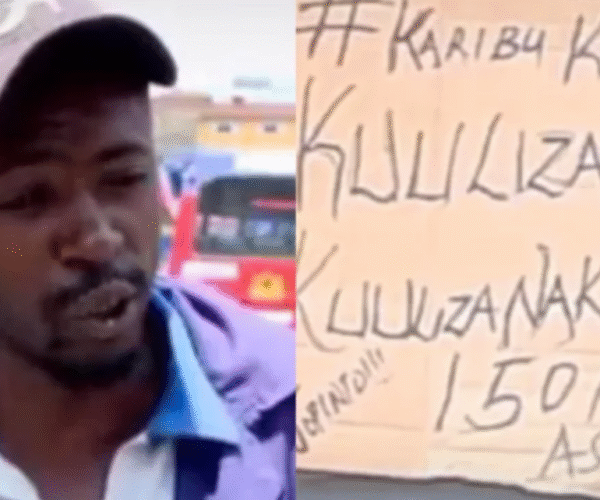 #KARIBU K
KUULIZA
KUULIZA NAK
150
AS